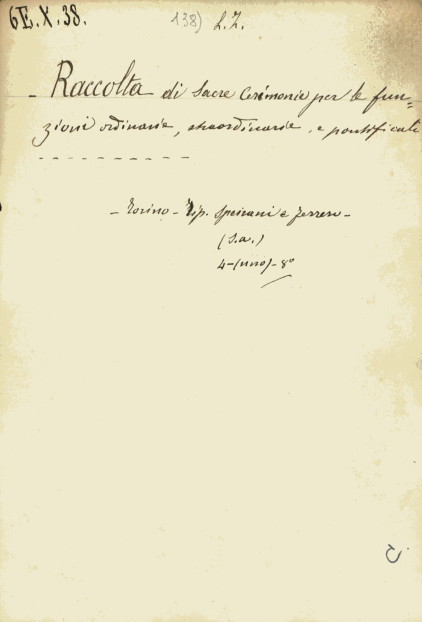 6E.X.38. 138) L.Z.
- Raccolta di Sacre Cerimonie per le fun=
zioni ordinarie, straordinarie, e pontificali
- Torino - Tip. Speirani e Ferrero -
(S.a.)
4-(uno)-8°